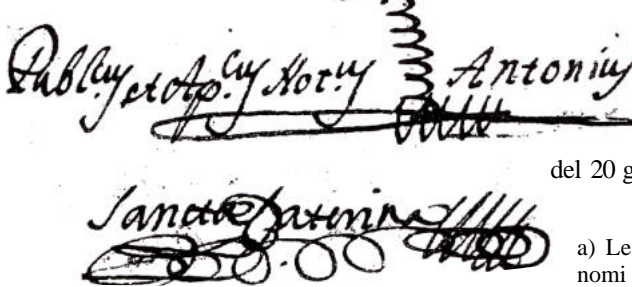 Publ.cus et Ap.cus Not.us Antonius
del 20 g
Sancta Caterina
a) Le
nomi